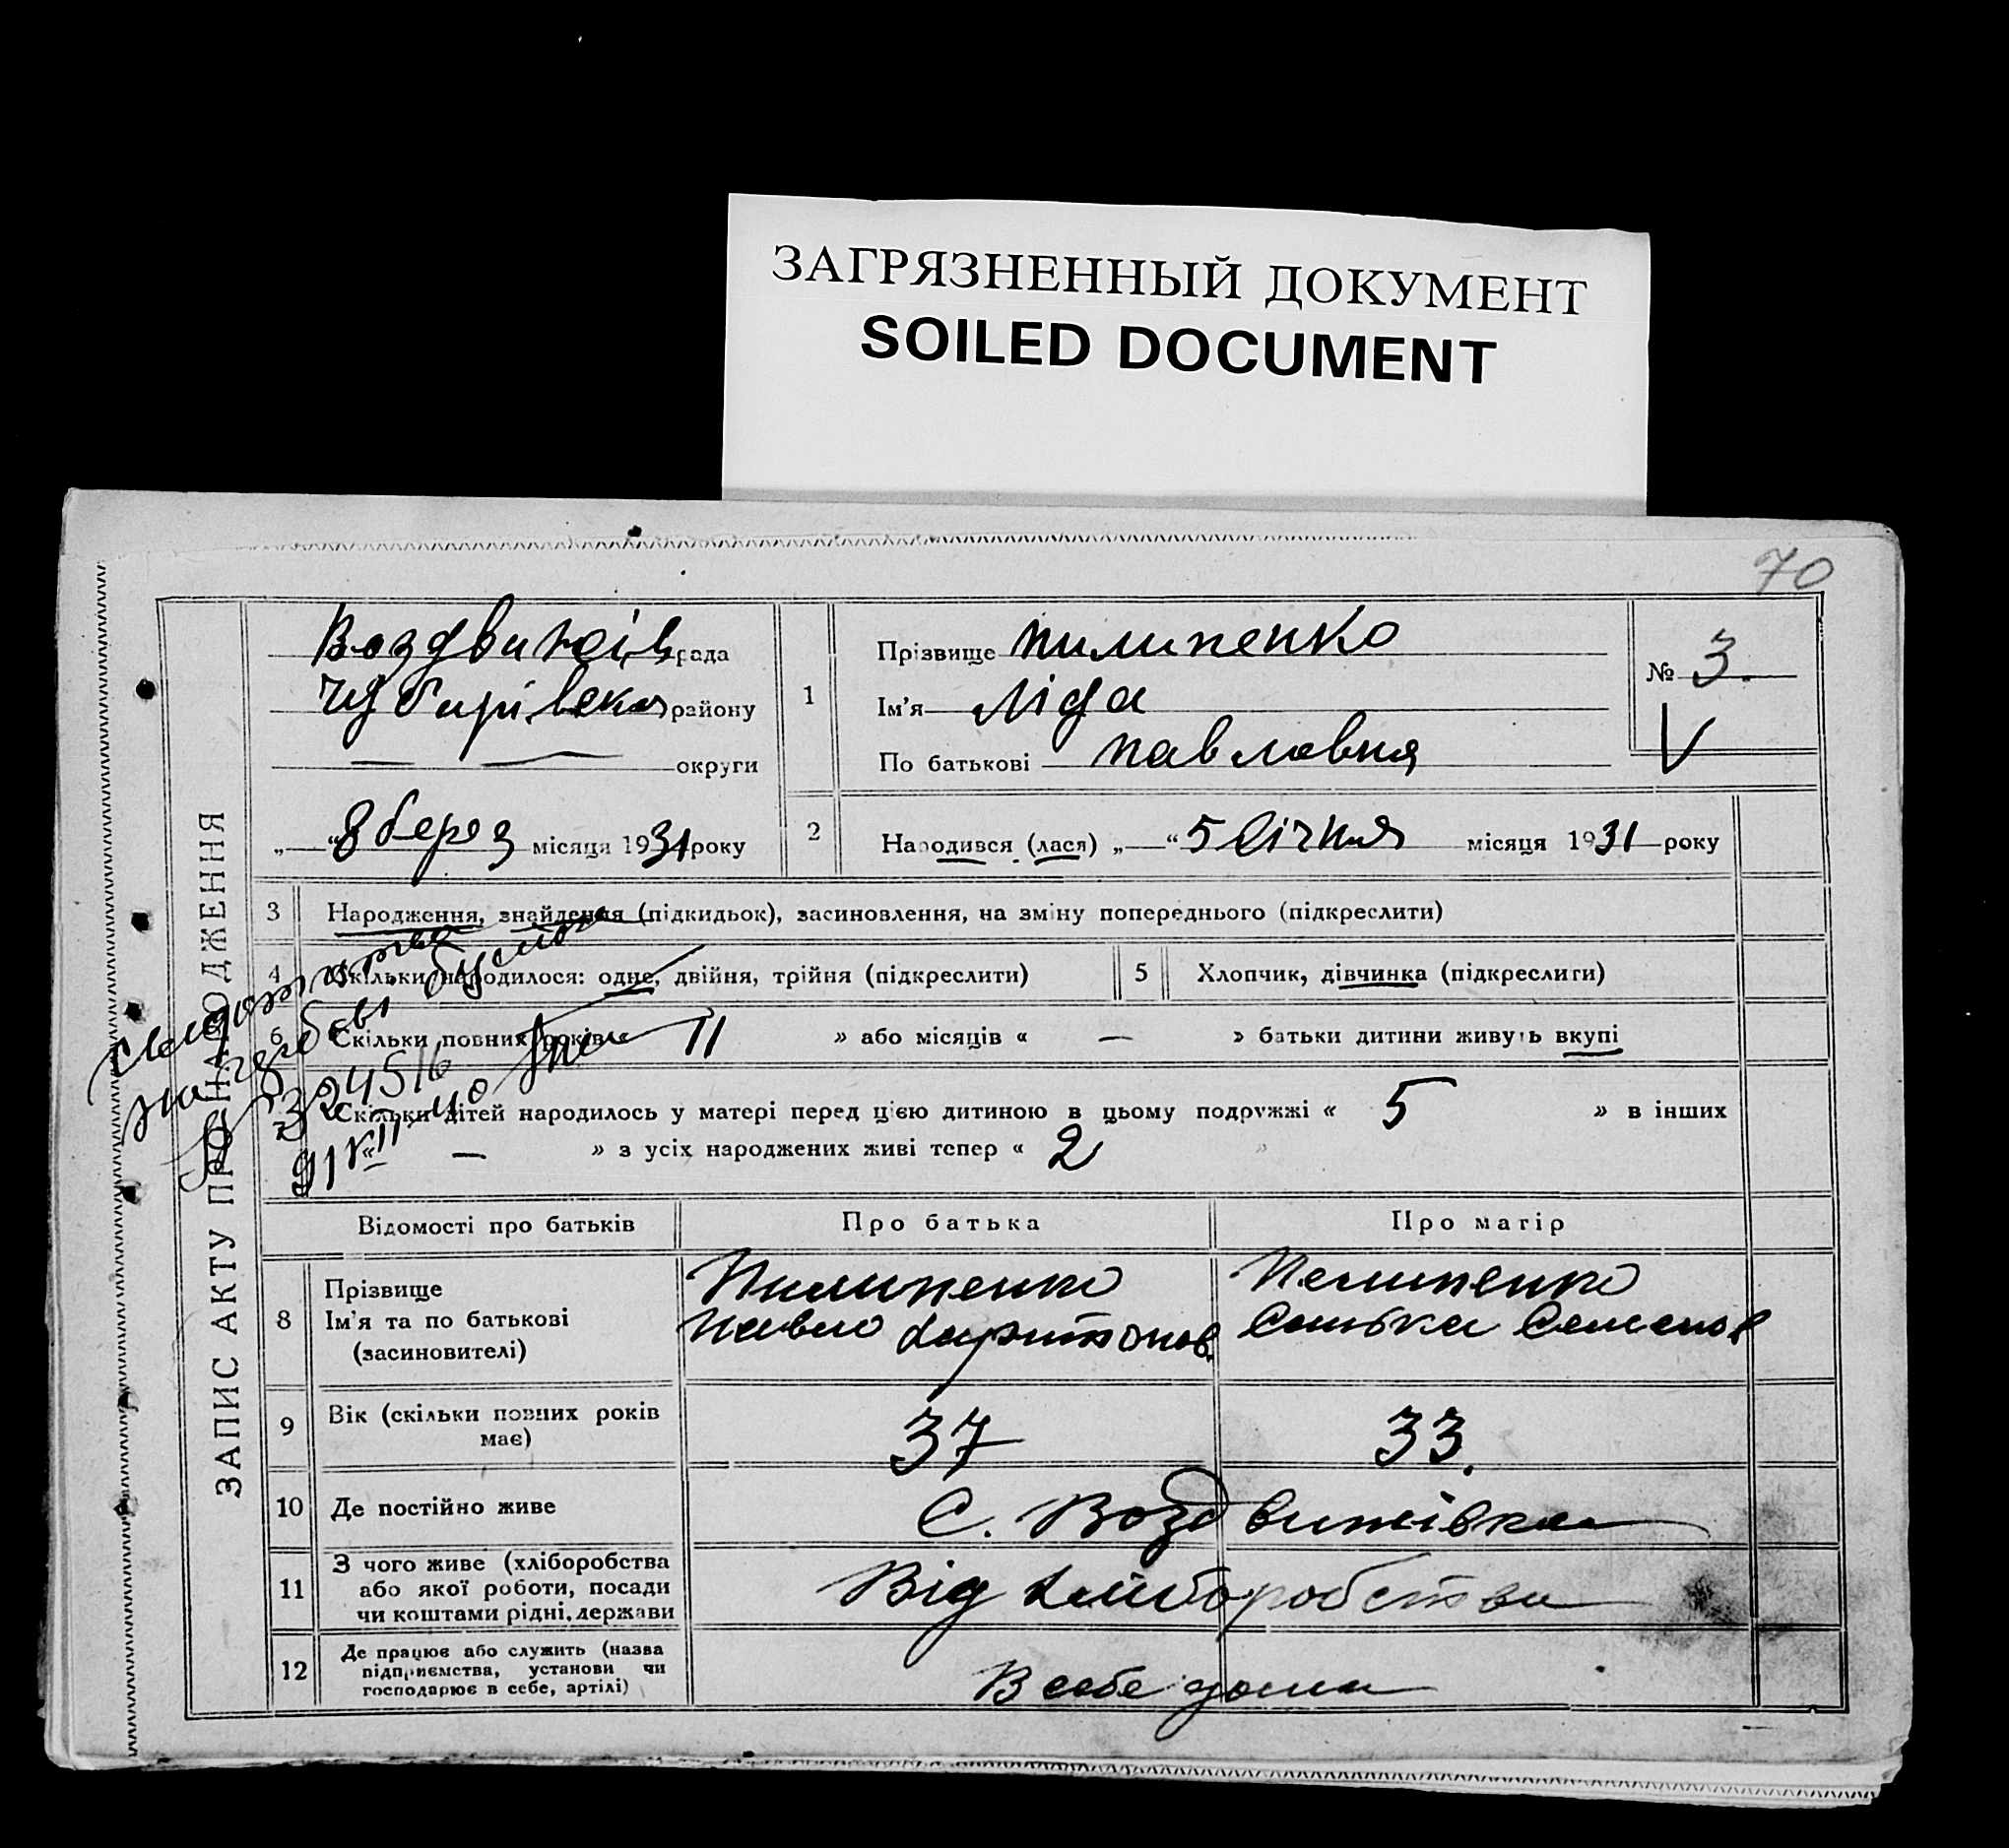 ЗАГРЯЗНЕННЫЙ ДОКУМЕНТ
SOILED DOCUMENT
70
ЗАПИС АКТУ ПРО НАРОДЖЕННЯ
рада
району
— — округи
„—“ 8 берез місяця 1931 року
1
Прізвище Пилипенко
Ім'я Ліда
По батькові Павловня
№ 3.
V
2 Народився (лася) „—“ 5 Січня місяця 1931 року
3 Народження, знайдення (підкидьок), засиновлення, на зміну попереднього (підкреслити)
4 Скільки народилося: одне, двійня, трійня (підкреслити) 5 Хлопчик, дівчинка (підкреслити)
6 Скільки повних років « 11 » або місяців « — » батьки дитини живуть вкупі
7 Скільки дітей народилось у матері перед цією дитиною в цьому подружжі « 5 » в інших
« — » з усіх народжених живі тепер « 2 »
324516
Відомості про батьків Про батька Про матір
8 Прізвище
Ім'я та по батькові
(засиновителі)
Пилипенко
Павло Харитонов.
Пелипенко
Семенов
9 Вік (скільки повних років має) 37 33.
10 Де постійно живе С. Воздвижівка
11 З чого живе (хліборобства
або якої роботи, посади
чи коштами рідні, держави
Від хліборобства
12 Де працює або служить (назва
підприємства, установи чи
господарює в себе, артілі)
В себе дома